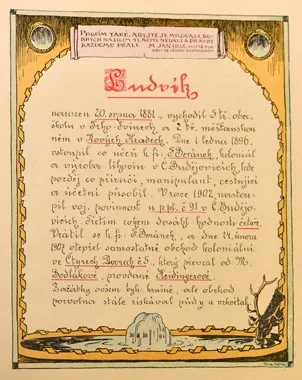 PROSÍM TAKÉ, ABYSTE SE MILOVALI, DO-
BRÝCH NÁSILÍM TLAČITI NEDALI A PRAVDY
KAŽDÉMU PŘÁLI. M. JAN HUS
Ludvík
narozen 20. srpna 1881, vychodil 5 tř. obec.
školu v Trho-Svinech, a 2 tř. měšťanskou
něm v Nových Hradech. Dne 1 ledna 1896.
vstoupil co učeň k f. J. Beránek, koloniál
a výroba lihovin v Č. Budějovicích, kde
později co příručí, manipulant, cestující
a účetní působil. V roce 1902 nastou-
pil voj. povinnost u p. pl. č 91 v Č. Budějo-
vicích. Třetím rokem dosáhl hodnosti četaře.
Vrátil se k f. J. Beránek, a dne 24. února
1907 otevřel samostatné obchod koloniální
ve Čtyrech Dvorech č 5, který převzal od M.
Bošťákové, provdané Heidingerové.
Začátky ovšem byly krušné, ale obchod
pozvolna stále získával půdy a vzkvétal.